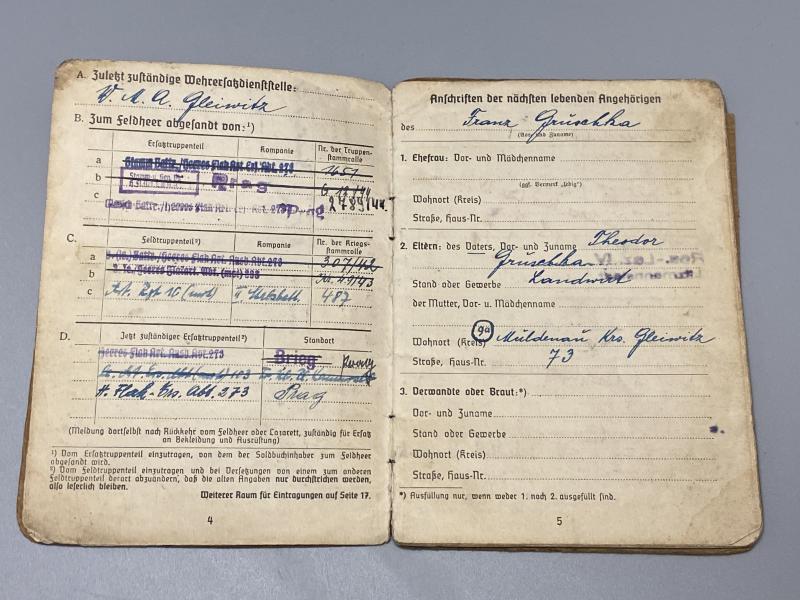 A. Zuletzt zuständige Wehrersatzdienststelle:
W. M. A. Gleiwitz
B. Zum Feldheer abgesandt von:¹)
Ersatztruppenteil Kompanie Nr. der Truppenstammrolle
a Stamm Battr./Heeres Flak Art. Ers. Abt. 273 1651
b Prag 6 18/44
c Battr./Heeres Flak Art. Abt. 273 Prag 2789/44.
C. Feldtruppenteil²) Kompanie Nr. der Kriegsstammrolle
a Battr./Heeres Flak Art. Ausb. Abt. 273 307/42
b
c Art. Rgt 16 (mot) 487
D. Jetzt zuständiger Ersatztruppenteil²) Standort
Heeres Flak Art. Ausb. Abt. 273 Brieg
103
H. Flak-Ers. Abt. 273 Prag
(Meldung dortselbst nach Rückkehr vom Feldheer oder Lazarett, zuständig für Ersatz
an Bekleidung und Ausrüstung)
¹) Vom Ersatztruppenteil einzutragen, von dem der Soldbuchinhaber zum Feldheer
abgesandt wird.
²) Vom Feldtruppenteil einzutragen und bei Versetzungen von einem zum anderen
Feldtruppenteil derart abzuändern, daß die alten Angaben nur durchstrichen werden,
also leserlich bleiben.
Weiterer Raum für Eintragungen auf Seite 17.
4
Anschriften der nächsten lebenden Angehörigen
des Franz Gruschka
(Vor- und Zuname)
1. Ehefrau: Vor- und Mädchenname
(ggf. Vermerk „ledig")
Wohnort (Kreis)
Straße, Haus-Nr.
2. Eltern: des Vaters, Vor- und Zuname Theodor
Gruschka
Stand oder Gewerbe Landwirt
der Mutter, Vor- u. Mädchenname
Wohnort (Kreis) 9a Muldenau Krs. Gleiwitz
Straße, Haus-Nr. 73
3. Verwandte oder Braut:*)
Vor- und Zuname
Stand oder Gewerbe
Wohnort (Kreis)
Straße, Haus-Nr.
*) Ausfüllung nur, wenn weder 1. noch 2. ausgefüllt sind.
5